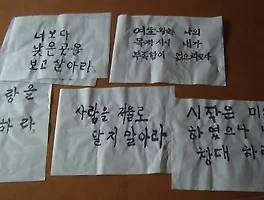 너보다
낮은곳을
보고 살아라.
여호와는 나의
목자시니 내가
부족함이 없으리로다
랑을
하라.
사람을 저울로
달지 말아라.
시작은 미
하였으나 나
창대 하리